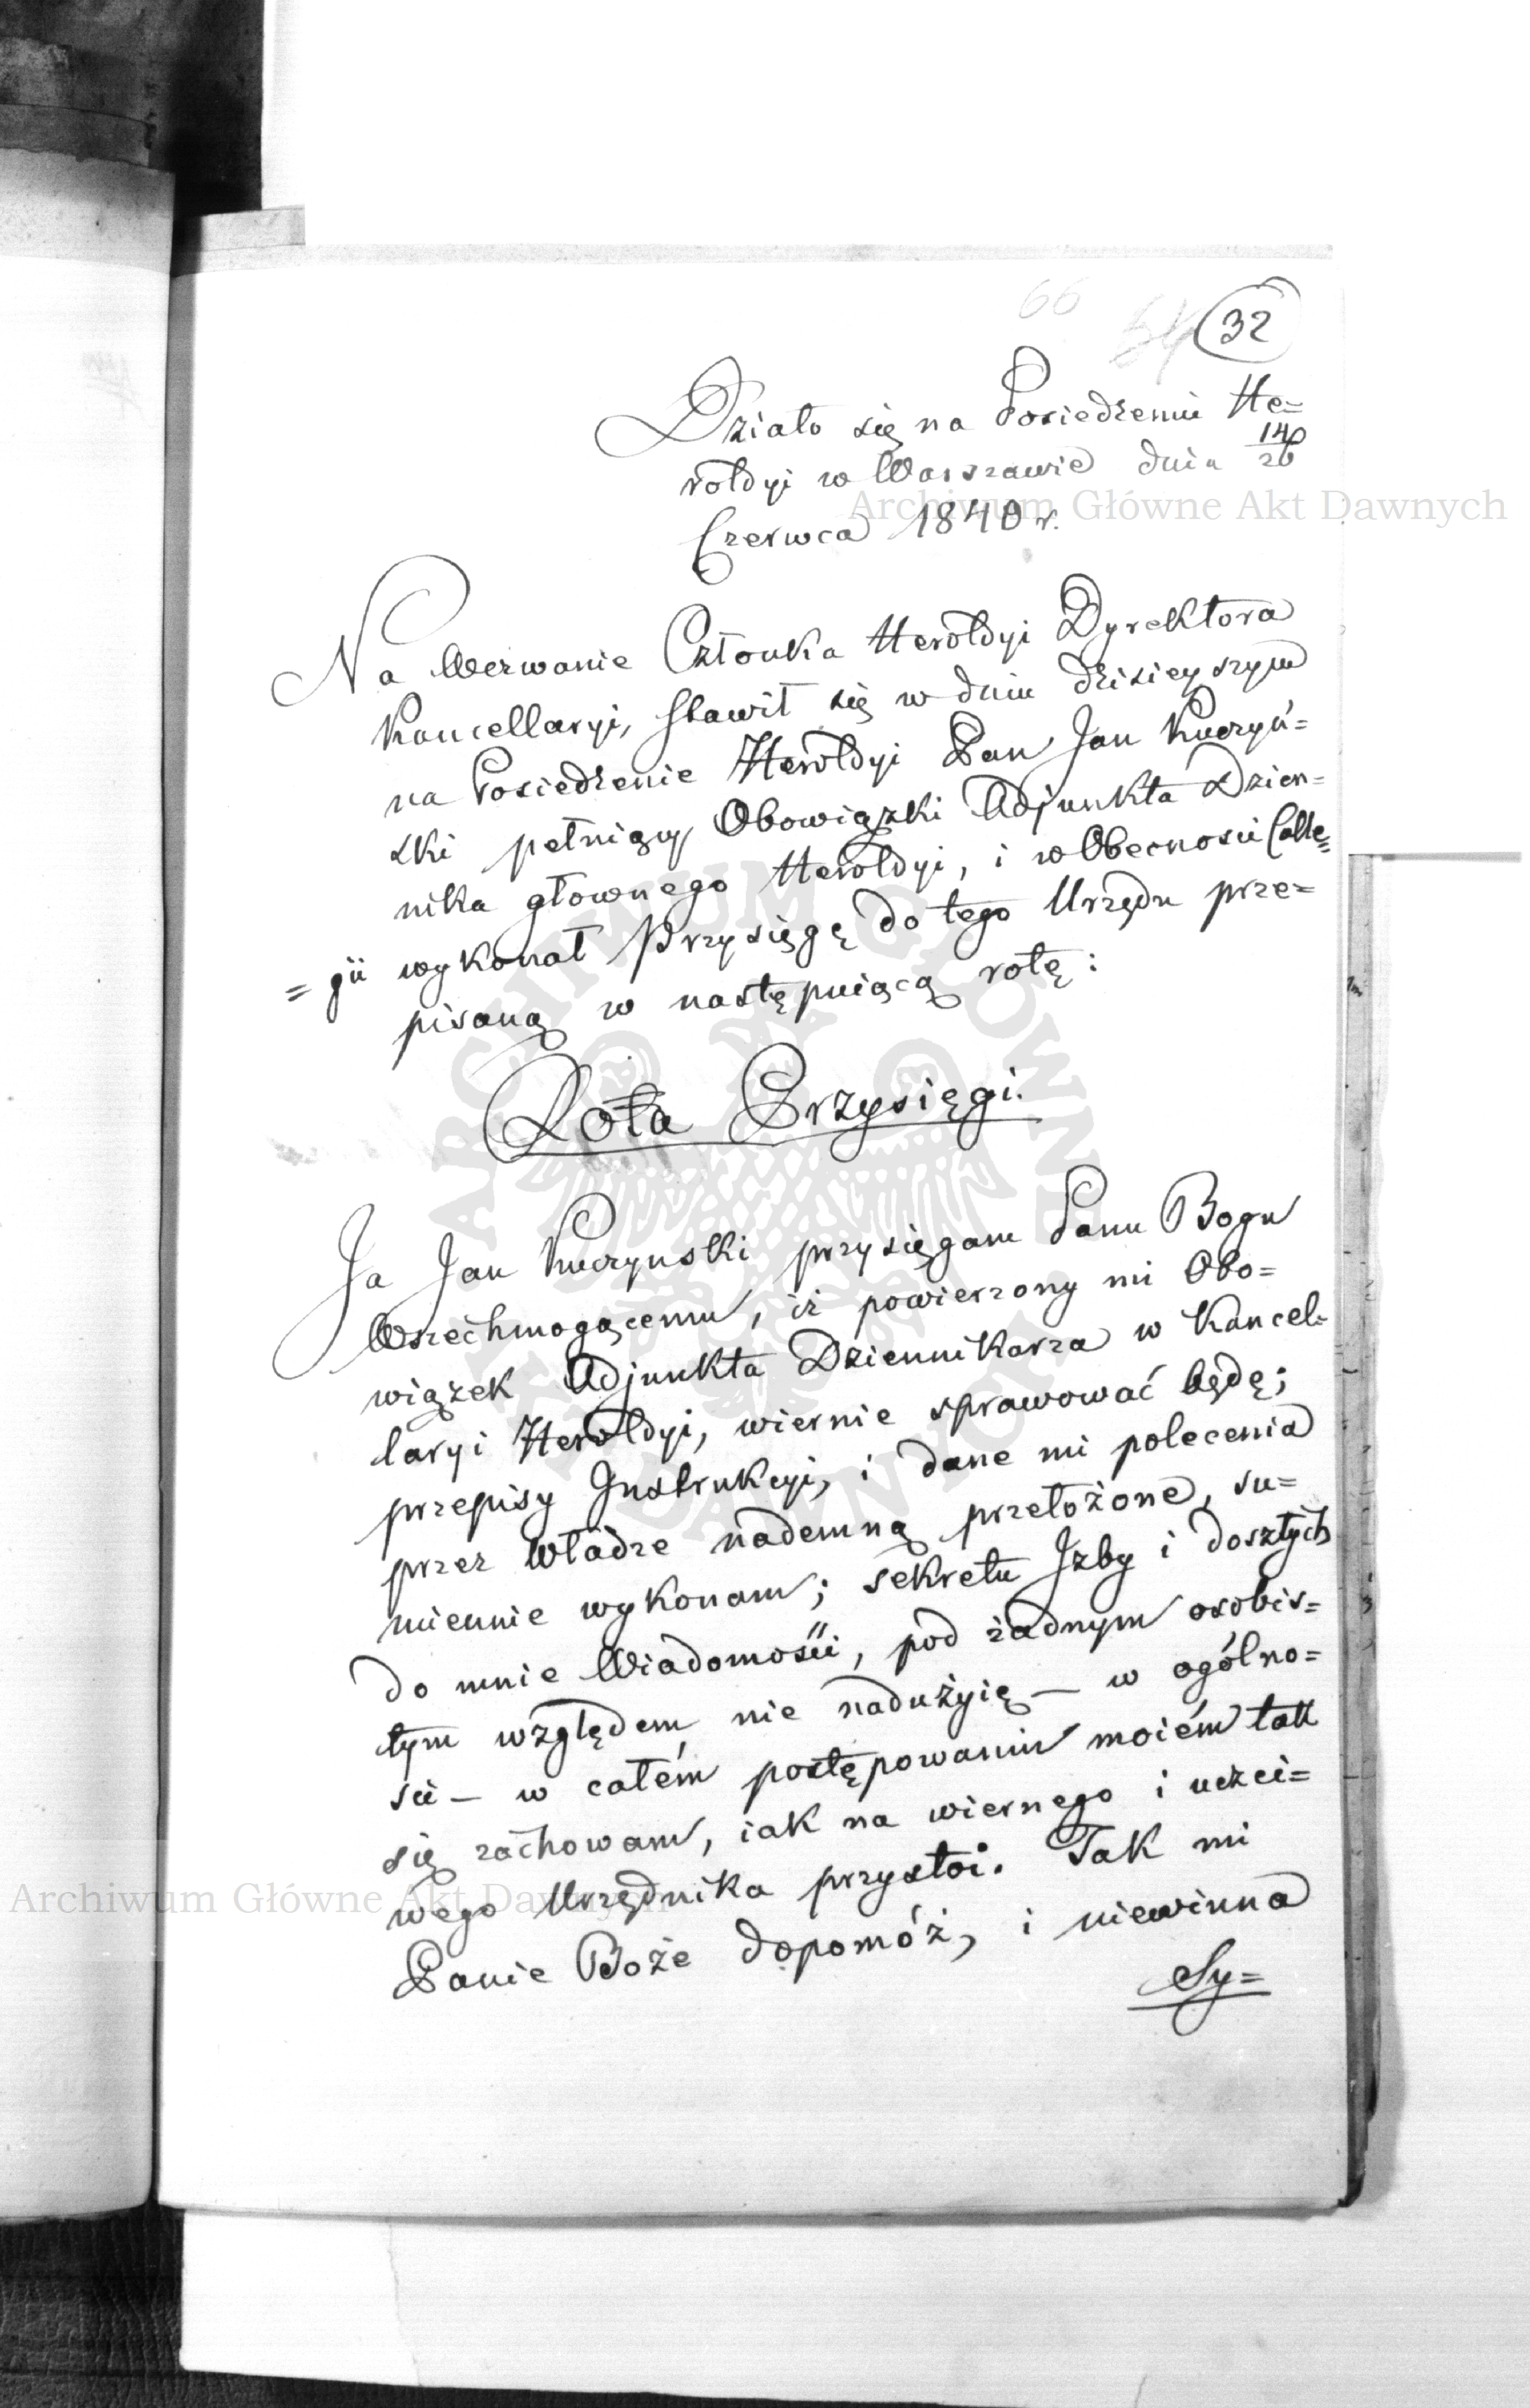 66 54 32
Działo się na Posiedzeniu He=
roldyi w Warszawie dnia 14/26
Czerwca 1840 r.
Na Wezwanie Członka Heroldyi Dyrektora
Kancellaryi, stawił się w dniu dzisieyszym
na Posiedzenie Heroldyi Pan Jan Kuczyń=
ski pełniący Obowiązki Adjunkta Dzien=
nika głownego Heroldyi, i w Obecności Colle=
=gii wykonał Przysięgę do tego Urzędu prze=
pisaną w następuiącą rotę:
Rota Przysięgi.
Ja Jan Kuczynski przysięgam Panu Bogu
Wszechmogącemu, iż powierzony mi Obo=
wiązek Adjunkta Dziennikarza w Kancel=
laryi Heroldyi, wiernie sprawować będę;
przepisy Instrukcyi, i dane mi polecenia
przez Władze nademną przełożone, su=
miennie wykonam; sekretu Izby i doszłych
do mnie Wiadomości, pod żadnym osobis=
tym względem nie nadużyię — w ogólno=
ści — w całém postępowaniu moiém tak
się zachowam, iak na wiernego i uczci=
wego Urzędnika przystoi. Tak mi
Panie Boże dopomóż, i niewinna
Sy=
Archiwum Główne Akt Dawnych
ARCHIWUM GŁÓWNE AKT DAWNYCH
Archiwum Główne Akt Dawnych